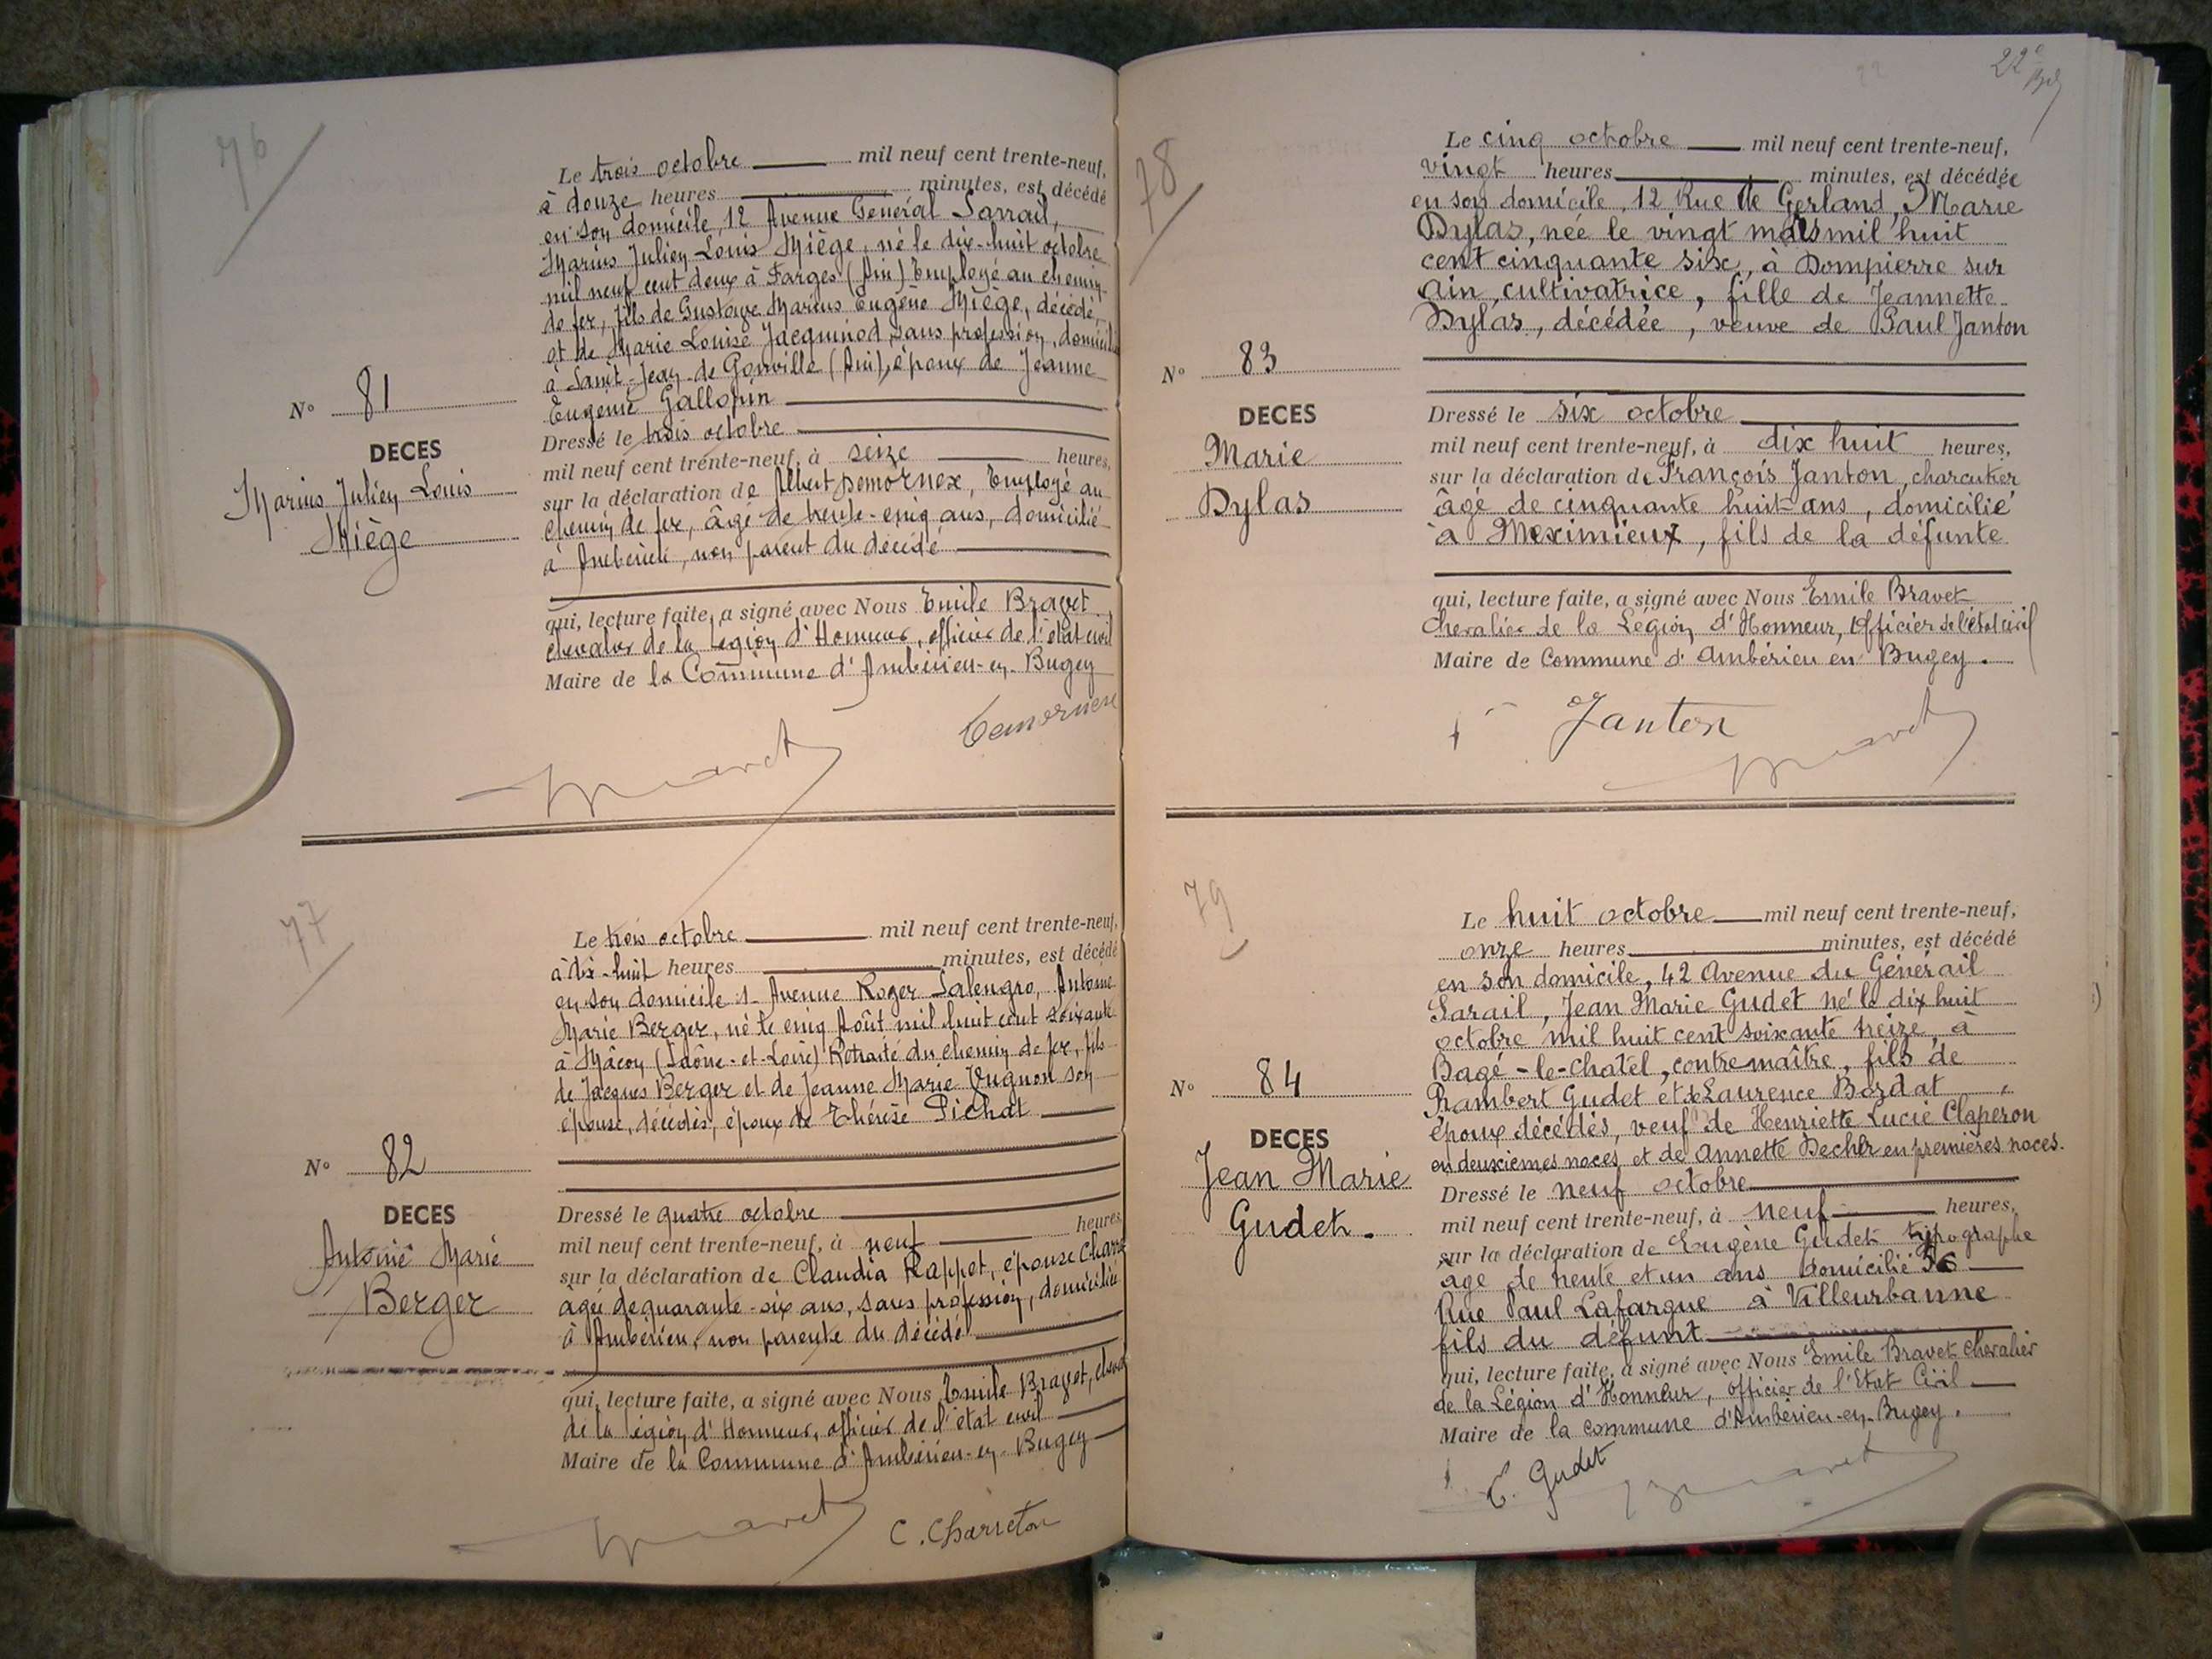 76
Le trois octobre mil neuf cent trente-neuf,
à douze heures minutes, est décédé
en son domicile, 12 Avenue Général Sarrail,
Marius Julien Louis Miège, né le dix-huit octobre
mil neuf cent deux à Farges (Ain) Employé au chemin
de fer, fils de Gustave Marius Eugène Miège, décédé,
et de Marie Louise Jacquinod, sans profession, domicilié
à Saint-Jean-de-Gonville (Ain), époux de Jeanne
Eugénie Gallopin
Nº 81
DECES
Marius Julien Louis
Miège
Dressé le trois octobre
mil neuf cent trente-neuf, à seize heures,
sur la déclaration de Albert Demornex, Employé au
chemin de fer, âgé de trente-cinq ans, domicilié
à Ambérieu, non parent du décédé
qui, lecture faite, a signé avec Nous Emile Bravet
chevalier de la Légion d'Honneur, officier de l'état civil
Maire de la Commune d'Ambérieu-en-Bugey
Demornex
Bravet
77
Le trois octobre mil neuf cent trente-neuf,
à dix-huit heures minutes, est décédé
en son domicile 1 Avenue Roger Salengro, Antoine
Marie Berger, né le cinq Août mil huit cent soixante
à Mâcon (Saône-et-Loire) Retraité du chemin de fer, fils
de Jacques Berger et de Jeanne Marie Vugnon son
épouse, décédés, époux de Thérèse Pichat
Nº 82
DECES
Antoine Marie
Berger
Dressé le quatre octobre
mil neuf cent trente-neuf, à neuf heures,
sur la déclaration de Claudia Rappet, épouse
âgée de quarante-six ans, sans profession, domiciliée
à Ambérieu, non parente du décédé
qui, lecture faite, a signé avec Nous Emile Bravet,
de la Légion d'Honneur, officier de l'état civil
Maire de la Commune d'Ambérieu-en-Bugey
Bravet
C. Charreton
22e
78
Le cinq octobre mil neuf cent trente-neuf,
vingt heures minutes, est décédée
en son domicile, 12 Rue de Gerland, Marie
Dylas, née le vingt mars mil huit
cent cinquante six, à Dompierre sur
Ain, cultivatrice, fille de Jeannette
Dylas, décédée, veuve de Paul Janton
Nº 83
DECES
Marie
Dylas
Dressé le six octobre
mil neuf cent trente-neuf, à dix huit heures,
sur la déclaration de François Janton, charcutier
âgé de cinquante huit ans, domicilié
à Meximieux, fils de la défunte
qui, lecture faite, a signé avec Nous Emile Bravet
Chevalier de la Légion d'Honneur, Officier de l'état civil
Maire de Commune d'Ambérieu en Bugey.
Janton
Bravet
79
Le huit octobre mil neuf cent trente-neuf,
onze heures minutes, est décédé
en son domicile, 42 Avenue du Générail
Sarail, Jean Marie Gudet né le dix huit
octobre mil huit cent soixante treize, à
Bagé-le-Chatel, contremaître, fils de
Rambert Gudet et de Laurence Bozdat,
époux décédés, veuf de Henriette Lucie Claperon
en deuxièmes noces et de Annette Decher en premières noces.
Nº 84
DECES
Jean Marie
Gudet.
Dressé le neuf octobre
mil neuf cent trente-neuf, à neuf heures,
sur la déclaration de Eugène Gudet typographe
âgé de trente et un ans domicilié 56
Rue Paul Lafargue à Villeurbanne
fils du défunt
qui, lecture faite, a signé avec Nous Emile Bravet chevalier
de la Légion d'Honneur, officier de l'Etat Civil
Maire de la commune d'Ambérieu-en-Bugey.
E. Gudet
Bravet